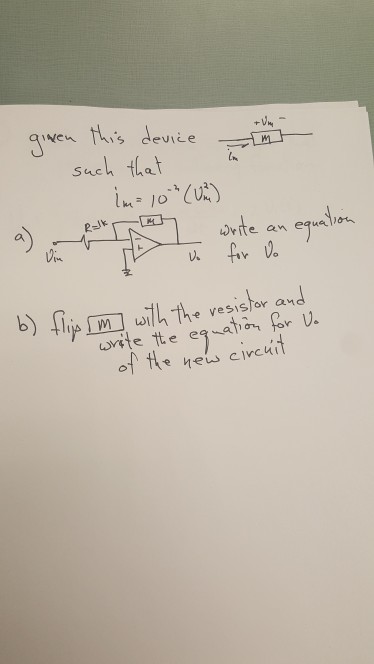 given this device + Vm - m im
such that
im = 10⁻³ (Vm²)
a) Vin R=1k m - + Vo write an equation
for Vo
b) flip m with the resistor and
write the equation for Vo
of the new circuit